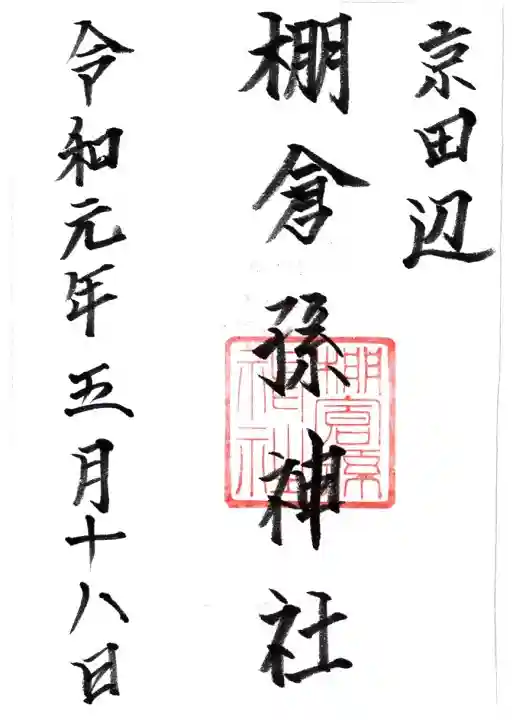 京田辺
棚倉孫神社
棚倉孫
神社
令和元年五月十八日